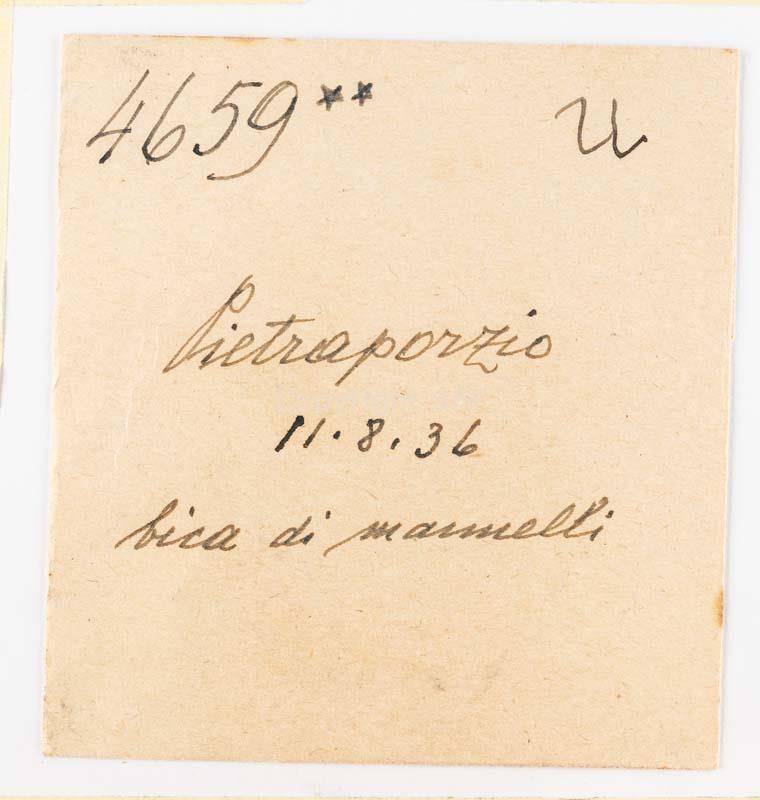 4659** U
Pietraporzio
11.8.36
bica di mannelli